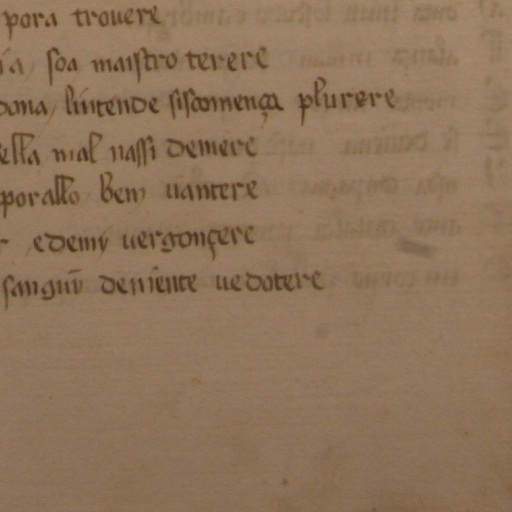 pora trouere
ia soa maistro terere
dona lintende siscomença plurere
ella mal nassi demere
por allo bem uantere
r edemi uergonçere
sanguī deniente uedotere